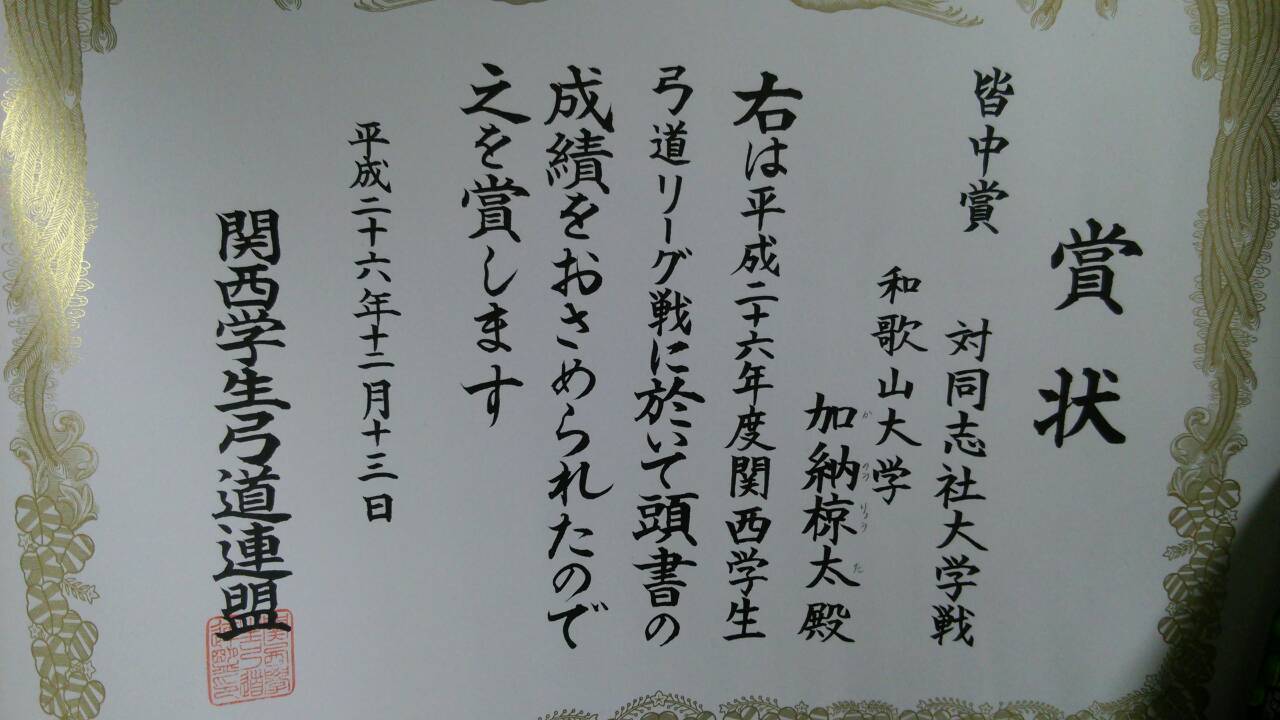 賞状
皆中賞
対同志社大学戦
和歌山大学
加納椋太殿
かのうりょうた
右は平成二十六年度関西学生
弓道リーグ戦に於いて頭書の
成績をおさめられたので
之を賞します
平成二十六年十二月十三日
関西学生弓道連盟